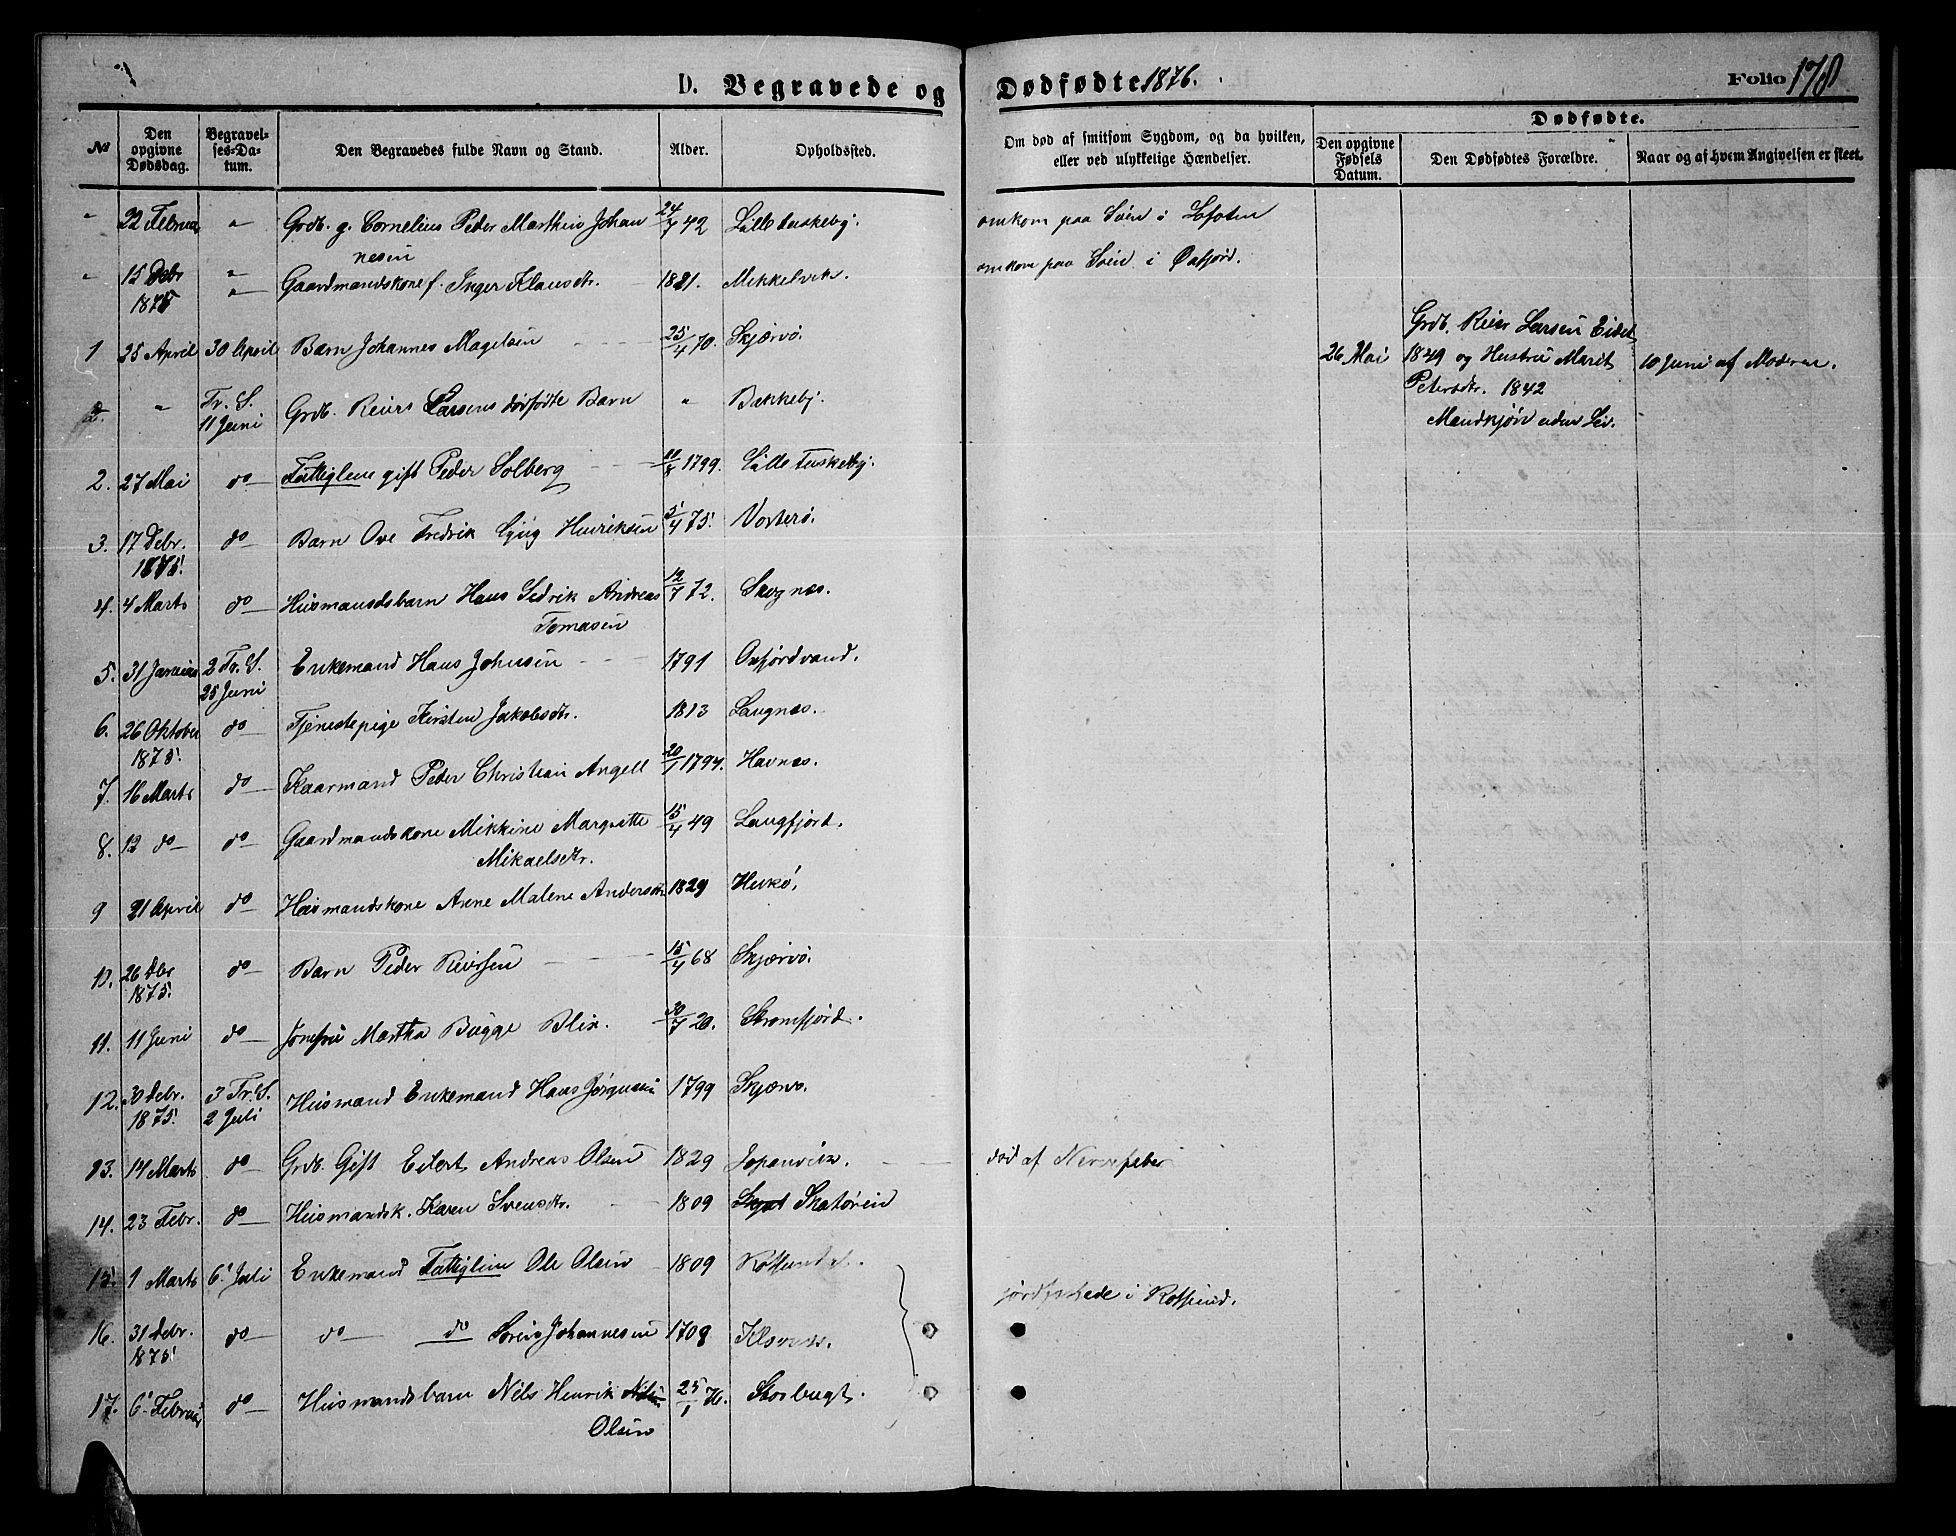 D. Begravede og Dødfødte 1876. Folio 178
№ | Den opgivne Dødsdag. | Begravelses-Datum. | Den Begravedes fulde Navn og Stand. | Alder. | Opholdssted. | Om død af smitsom Sygdom, og da hvilken, eller ved ulykkelige Hændelser. | Dødfødte.
Den opgivne Fødsels Datum. | Den Dødfødtes Forældre. | Naar og af hvem Angivelsen er skeet.
" 22 Februar " Grdb. g. Cornelius Peder Marthius Johan 24/7 42 Lille tuskeby. omkom paa Søen i Lofoten
nesen
" 15 Debr " Gaardmandskone f. Inger Klausdtr. 1821. Mikkelvik. omkom paa Søen i Oxfjord.
1875 "
1 25 April 30 April Barn Johannes Magelsen 25/4 70. Skjærvø.
26 Mai Grdb. Reier Larsen Eidet
1849 og Hustru Marit 10 Juni af Moderen.
Petersdtr. 1842
Mandkjøn uden Liv.
2. " Tr. S. Grdb. Reiers Larsens dødfødte Barn " Bakkeby.
11 Juni
2. 27 Mai do Fattiglem gift Peder Solberg 1799. Lille tuskeby.
3. 17 Debr. do Barn Ove Fredrik Henriksen 5/4 75. Vorterø.
1875.
4. 4 Marts do Husmandsbarn Hans Andreas 12/7 72. Skognæs.
Tomasen
5. 31 Januar 2 Tr. S. Enkemand Hans Johnsen 1791 Oxfjordvand.
25 Juni
6. 26 Oktober do Tjenestepige Kirsten Jakobsdtr. 1813 Laugnæs.
1875.
7. 16 Marts do Kaarmand Peder Christian Angell 20/1 1794. Havnæs.
8. 12 do do Gaardmandskone Mikkine Margrette 15/4 49 Langfjord.
Mikaelsdtr.
9 21 April do Husmandskone Anne Malene Andersdtr 1829 Hukø.
10. 26 Dbr do Barn Peder Reiersen 15/4 68 Skjærvø.
1875.
11. 11 Juni do Jomfru Martha Bugge Blix. 30/7 20. Strømfjord.
12. 30 Debr. 3 Tr. S. Husmand Enkemand Hans Jørgensen 1799 Skjærvø.
1875. 2 Juli
13. 14 Marts do Grdb. Gift Eilert Andreas Olsen 1829 død af Nervefeber
14. 23 Febr. do Husmandsk. Karen Svensdtr. 1809 Skatøren
15. 1 Marts 6 Juli Enkemand Fattiglem Ole Olsen 1809 Rotsund.
jordfæstede i Rotsund.
16. 31 Debr. do do do Johannesen
1875.
17. 6 Februar do Husmandsbarn Nils Henrik 25/1 76. Storbugt.
Olsen